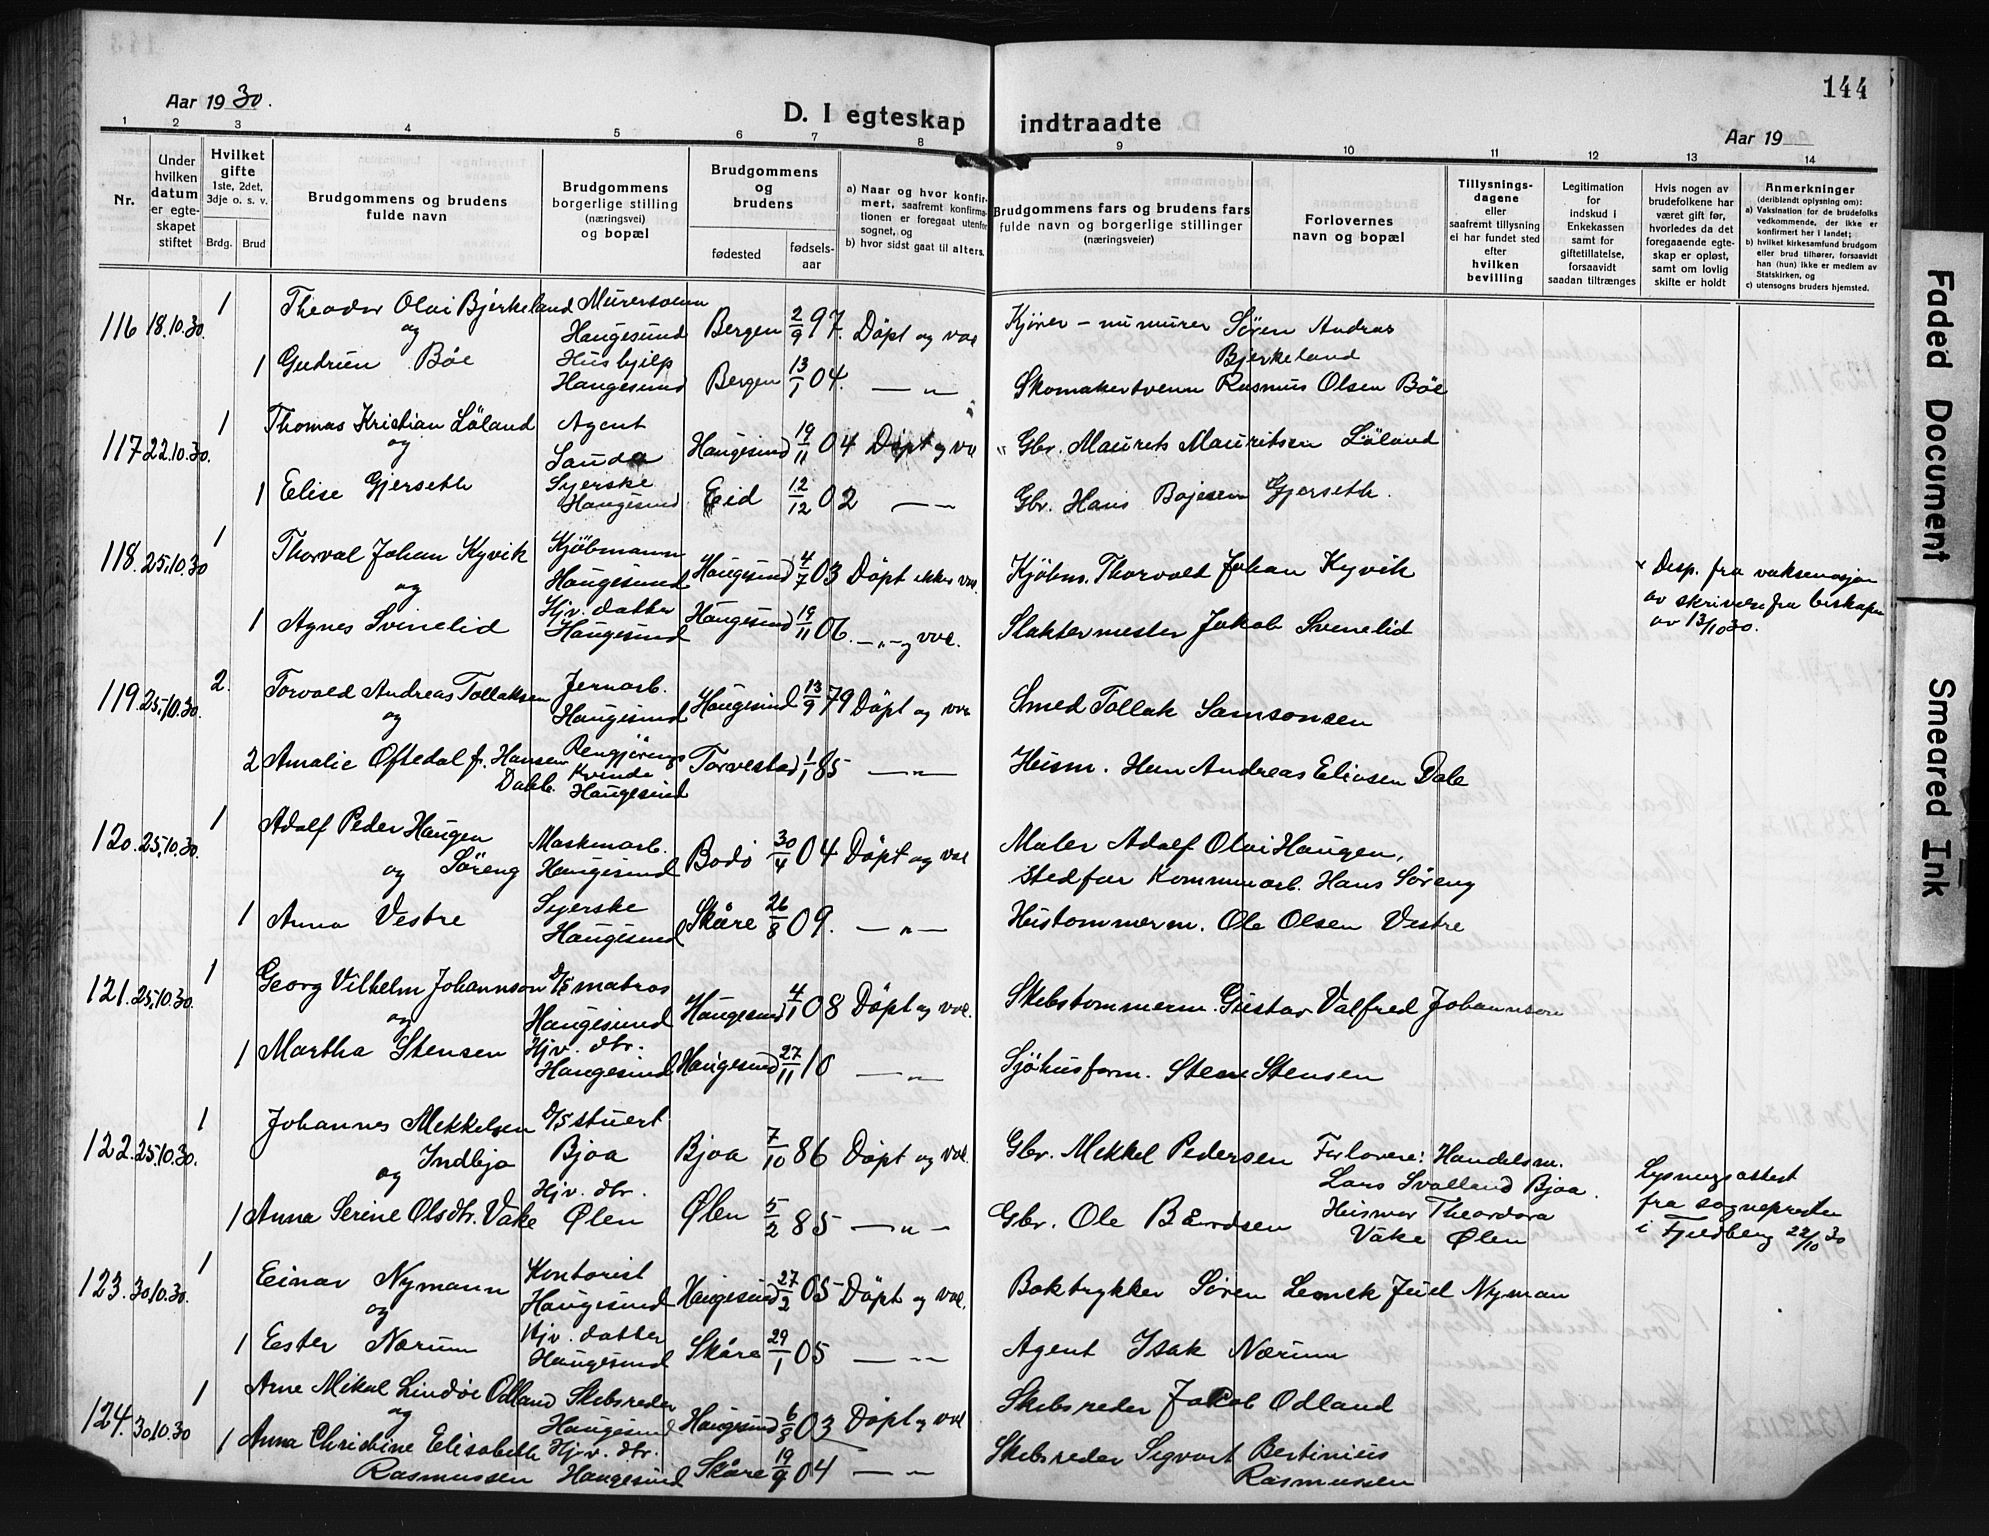 144
Aar 1930.
D. I egteskap indtraadte
Aar 19
1 2 3 4 5 6 7 8 9 10 11 12 13 14
Nr.
Under hvilken datum er egteskapet stiftet
Hvilket gifte 1ste, 2det, 3dje o. s. v.
Brdg. Brud
Brudgommens og brudens fulde navn
Brudgommens borgerlige stilling (næringsvei) og bopæl
Brudgommens og brudens
fødested fødselsaar
a) Naar og hvor konfirmert, saafremt konfirmationen er foregaat utenfor sognet, og
b) hvor sidst gaat til alters.
Brudgommens fars og brudens fars fulde navn og borgerlige stillinger (næringsveier)
Forlovernes navn og bopæl
Tillysningsdagene eller saafremt tillysning ei har fundet sted efter hvilken bevilling
Legitimation for indskud i Enkekassen samt for giftetillatelse, forsaavidt saadan tiltrænges
Hvis nogen av brudefolkene har været gift før, hvorledes da det foregaaende egteskap er opløst, samt om lovlig skifte er holdt
Anmerkninger (deriblandt oplysning om):
a) Vaksination for de brudefolks vedkommende, der ikke er konfirmert her i landet;
b) hvilket kirkesamfund brudgom eller brud tilhører, forsaavidt han (hun) ikke er medlem av Statskirken, og
c) utensogns bruders hjemsted.
116 18.10.30. 1 Theodor Olai Bjerkeland Murersvenn Haugesund Bergen 2/9 97. Döpt og vac Kjörer - nu murer Sören Andreas Bjerkeland
og
1 Gudrun Böe Hushjelp Haugesund Bergen 13/1 04. — „ — Skomakersvenn Rasmus Olsen Böe
117 22.10.30. 1 Thomas Kristian Löland Agent Sauda Haugesund 19/11 04 Döpt og vac Gbr. Maurets Mauritsen Löland
og
1 Elise Gjerseth Syerske Haugesund Eid 12/12 02 — „ — Gbr. Hans Bojesen Gjerseth.
118. 25.10.30 1 Thorval Johan Kyvik Kjöbmann Haugesund Haugesund 4/7 03 Döpt ikke vac. Kjöbm. Thorvald Johan Kyvik
og
1 Agnes Svinelid Hjv. datter Haugesund Haugesund 19/11 06. — „ — og vac. Slaktermester Jakob Svenelid
× Desp. fra vaksenasjon
av skrivelse fra biskopen
av 13/10 30.
119. 25.10.30. 2. Torvald Andreas Tollaksen Jernarb. Haugesund Haugesund 13/9 79 Döpt og vac Smed Tollak Samsonsen
og
2 Amalie Oftedal f. Hansen Dahle Rengjörings Kvinde Haugesund Torvestad 1/1 85 — „ — Husm. Hans Andreas Eliasen Dale
120. 25.10.30. 1 Adolf Peder Haugen Söreng Maskinarb. Haugesund Bodö 30/4 04 Döpt og vac Maler Adolf Olai Haugen,
og
stedfar Kommunarb. Hans Söreng
1 Anna Vestre Syerske Haugesund Skåre 26/8 09. — „ — Hustommerm. Ole Olsen Vestre
121. 25.10.30. 1 Georg Vilhelm Johannson D/S matros Haugesund Haugesund 4/1 08 Döpt og vac. Skibstommerm. Gustav Valfred Johannson
og
1 Martha Stensen Hjv. dtr. Haugesund Haugesund 27/11 10 — „ — Sjöhusform. Stene Stensen
122. 25.10.30. 1 Johannes Mekkelsen Indbjo D/S stuert Bjoa Bjoa 7/10 86 Döpt og vac. Gbr. Mekkel Pedersen
og
Forlovere: Handelsm.
Lars Svolland Bjoa.
Husmor Theordora
Våke Ølen
Lysningsattest
fra sognepresten
i Fjeldberg 22/10 30
1 Anna Serine Olsdtr. Våke Hjv. dtr. Ølen Ølen 5/2 85 — „ — Gbr. Ole Bårdsen
123. 30.10.30. 1 Einar Nymann Kontorist Haugesund Haugesund 27/2 05 Döpt og vac. Boktrykker Sören Lemek Juel Nyman
og
1 Ester Nærum Hjv. datter Haugesund Skåre 29/1 05 — „ — Agent Isak Nærum
124. 30.10.30 1 Arne Mikal Lindöe Odland Skibsreder Haugesund Haugesund 6/8 03 Döpt og vac Skibsreder Jakob Odland
og
1 Anna Christine Elisabeth Rasmussen Hjv. dtr. Haugesund Skåre 19/9 04 — „ — Skibsreder Sigvart Bertinius Rasmussen
Faded Document
Smeared Ink